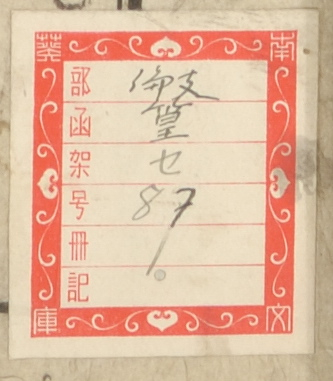 南葵
文庫
部
函
架 七
号 87
冊
記